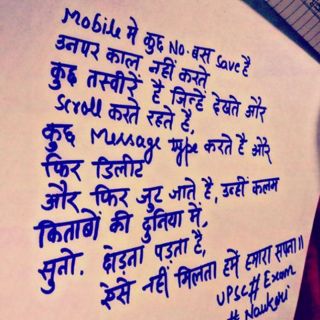 Mobile मे कुछ No. बस save है
उनपर काल नहीं करते
कुछ तस्वीरें है, जिन्हें देखते और
Scroll करते रहते है,
कुछ Message type करते है और
फिर डिलीट
और फिर जुट जाते है, उन्हीं कलम
किताबों की दुनिया में,
सुनो. छोड़ना पड़ता है,
ऐसे नहीं मिलता हमें हमारा सपना॥
UPSC# Exam
# Naukri